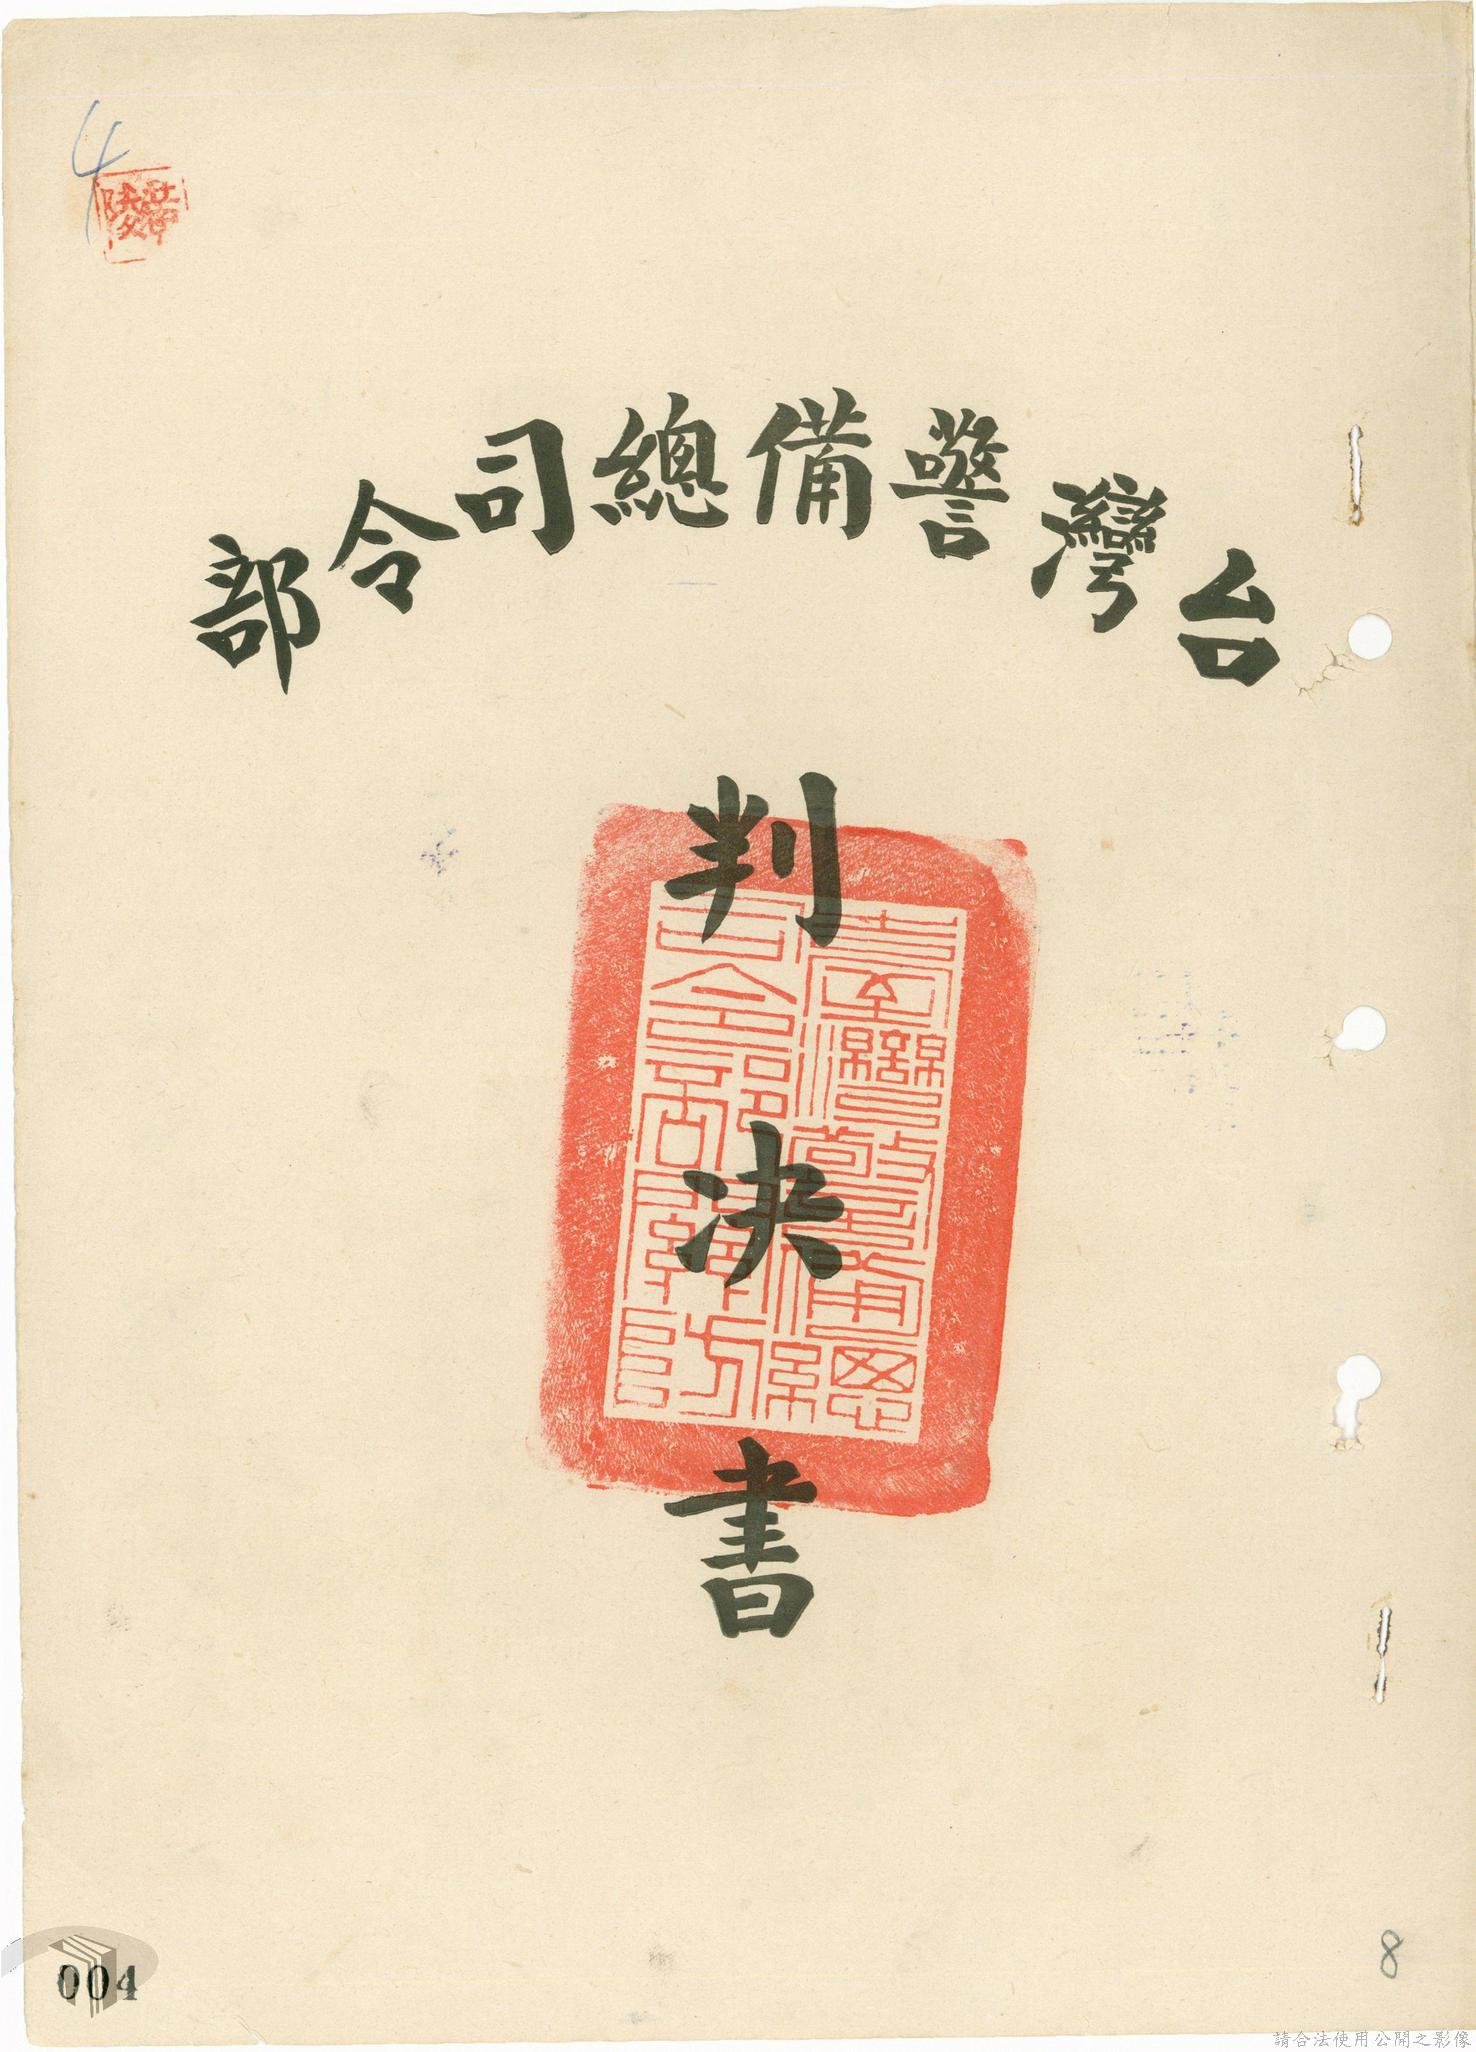 4
台灣警備總司令部
判
決
書
臺灣警備總
司令部關防
004
8
請合法使用公開之影像